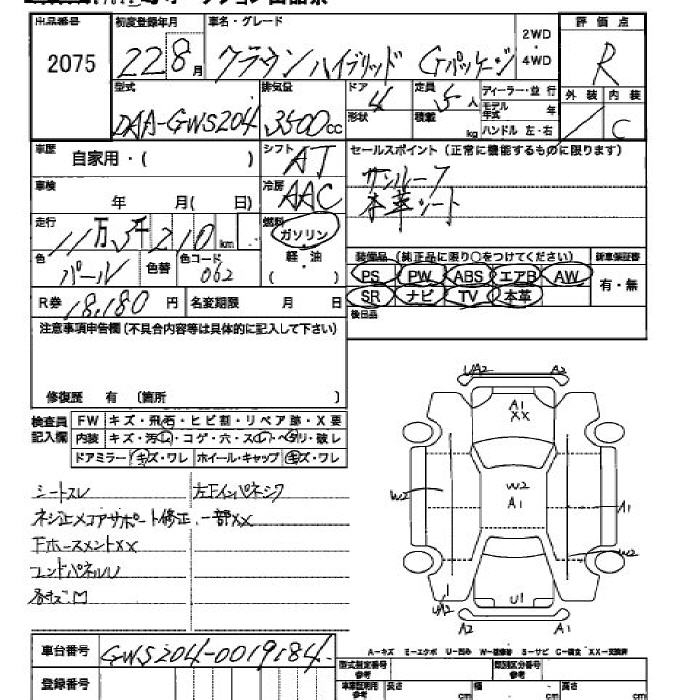 出品番号 初度登録年月 車名・グレード 評価点
2075 22 8月 クラウンハイブリッド Gパッケージ 2WD・4WD R
型式 排気量 ドア 定員 ディーラー・並行 外装 内装
DAA-GWS204 3500cc 4 5人 モデル年式 年 / C
形状 積載 kg ハンドル 左・右
車歴 自家用・( ) シフト AT セールスポイント(正常に機能するものに限ります)
車検 年 月( 日) 冷房 AAC サンルーフ
本革シート
走行 11万5千210km 燃料 ガソリン・軽・油 ( )
色 パール 色替 色コード 062
装備品 (純正品に限り○をつけてください) 新車保証書
PS PW ABS エアB AW 有・無
SR ナビ TV 本革
R券 18,180円 名変期限 月 日 後日品
注意事項申告欄(不具合内容等は具体的に記入して下さい)
修復歴 有 〔箇所 〕
検査員記入欄 FW キズ・飛石・ヒビ割・リペア跡・X要
内装 キズ・汚レ・コゲ・穴・スレ・ヘタリ・破レ
ドアミラー キズ・ワレ ホイール・キャップ キズ・ワレ
シートスレ 左Fインパネシワ
ネジ止メコアサポート修正、一部XX
FホースメントXX
エンドパネルU
UA2 A2
A1
XX
W2 W2
A1 A1
W2
UA2 U1
A2 A1
A-キズ E-エクボ U-凹み W-補修跡 S-サビ C-腐食 XX-交換済
車台番号 GWS204-0019184
登録番号
型式指定番号参考 類別区分番号参考
車庫証明用参考 長さ cm 幅 cm 高さ cm